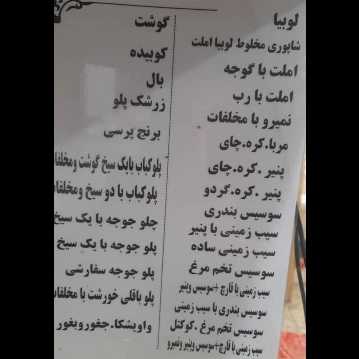 لوبیا
شاپوری مخلوط لوبیا املت
املت با گوجه
املت با رب
نمیرو با مخلفات
مربا.کره.چای
پنیر .کره.چای
پنیر .کره.گردو
سوسیس بندری
سیب زمینی با پنیر
سیب زمینی ساده
سوسیس تخم مرغ
سیب زمینی با قارچ +سوسیس وپنیر
سوسیس بندری با سیب زمینی
سوسیس تخم مرغ .کوکتل
سیب زمینی با قارچ+سوسیس وپنیر ونمیرو
گوشت
کوبیده
بال
زرشک پلو
برنج پرسی
پلوکباب بایک سیخ گوشت ومخلفا
پلوکباب با دو سیخ ومخلفا
چلو جوجه با یک سیخ
پلو جوجه با یک سیخ
پلو جوجه سفارشی
پلو باقلی خورشت با مخلفا
واویشکا.جغورویغور